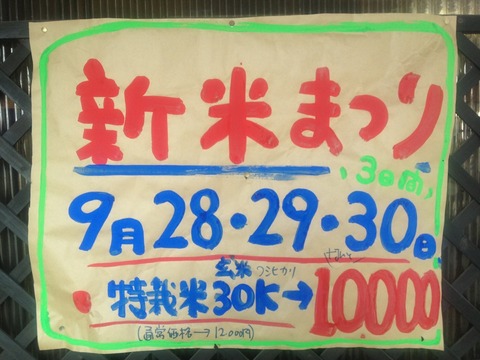 新米まつり
3日間
9月28・29・30日
玄米 コシヒカリ
特栽米30K→10000
(通常価格→12000円)